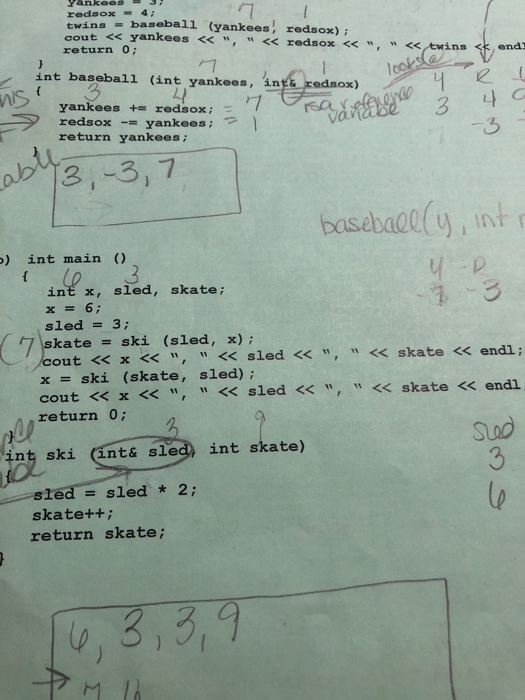 yankees = 3;
redsox = 4; 7 1
twins = baseball (yankees, redsox);
cout << yankees << ", " << redsox << ", " << twins << endl
return 0;
}
7 1
int baseball (int yankees, int& redsox)
{ 3 4
yankees += redsox; = 7
redsox -= yankees; = 1
return yankees;
}
is a reference
variable
4 R
3 4
-3
3, -3, 7
baseball(y, int
y R
-3
) int main ()
{ 6 3
int x, sled, skate;
x = 6;
sled = 3;
(7) skate = ski (sled, x);
cout << x << ", " << sled << ", " << skate << endl;
x = ski (skate, sled);
cout << x << ", " << sled << ", " << skate << endl
return 0;
}
3 9
int ski (int& sled, int skate)
{
sled = sled * 2;
skate++;
return skate;
}
sled
3
6
6, 3, 3, 9